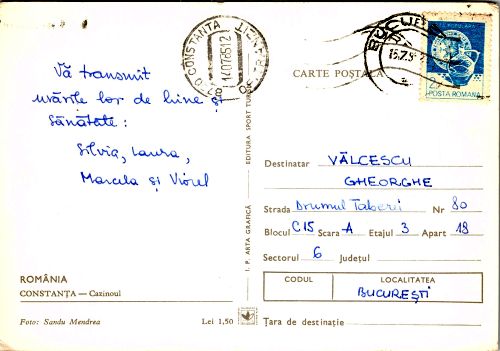 CONSTANȚA
CARTE POȘTALĂ
POSTA ROMANA
Vă transmit
urările lor de bine și
sănătate:
Silvia, Laura,
Marcela și Viorel
EDITURA SPORT TURISM
I. P. ARTA GRAFICĂ
Destinatar VÂLCESCU
GHEORGHE
Strada Drumul Taberei Nr 80
Blocul C15 Scara A Etajul 3 Apart 18
Sectorul 6 Județul
CODUL LOCALITATEA
BUCUREȘTI
Țara de destinație
ROMÂNIA
CONSTANȚA — Cazinoul
Foto: Sandu Mendrea Lei 1,50